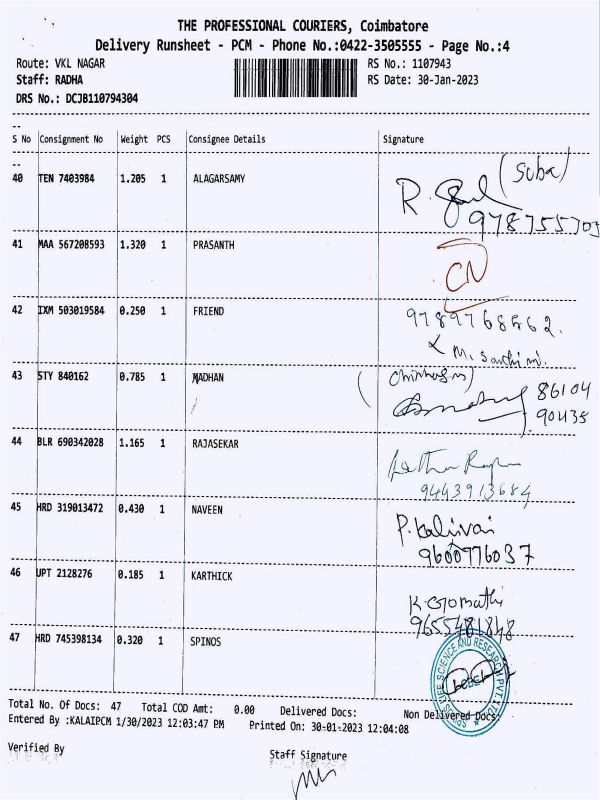 THE PROFESSIONAL COURIERS, Coimbatore
Delivery Runsheet - PCM - Phone No.:0422-3505555 - Page No.:4
Route: VKL NAGAR RS No.: 1107943
Staff: RADHA RS Date: 30-Jan-2023
DRS No.: DCJB110794304
S No Consignment No Weight PCS Consignee Details Signature
40 TEN 7403984 1.205 1 ALAGARSAMY
(Suba)
41 MAA 567208593 1.320 1 PRASANTH
CN
42 IXM 503019584 0.250 1 FRIEND
43 STY 840162 0.785 1 MADHAN
86104
90435
44 BLR 690342028 1.165 1 RAJASEKAR
9443913684
45 HRD 319013472 0.430 1 NAVEEN
P. Kalaivai
9600776037
46 UPT 2128276 0.185 1 KARTHICK
K Gomathi
9655481848
47 HRD 745398134 0.320 1 SPINOS
SPINOS LIFE SCIENCE AND RESEARCH PVT. LTD
Total No. Of Docs: 47 Total COD Amt: 0.00 Delivered Docs: Non Delivered Docs:
Entered By :KALAIPCM 1/30/2023 12:03:47 PM Printed On: 30-01-2023 12:04:08
Verified By Staff Signature